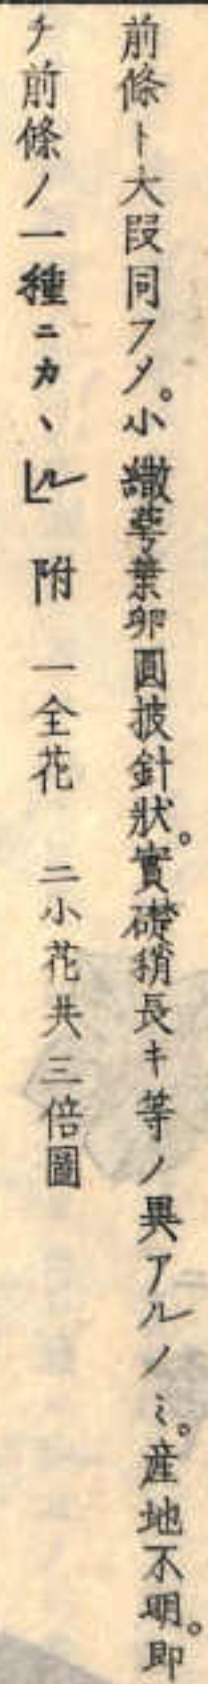 前條ト大段同フメ。小繖萼葉卵圓披針狀。實礎稍長キ等ノ異アルノミ。産地不明。即
チ前條ノ一種ニカヽル」 附 一全花 二小花共三倍圖